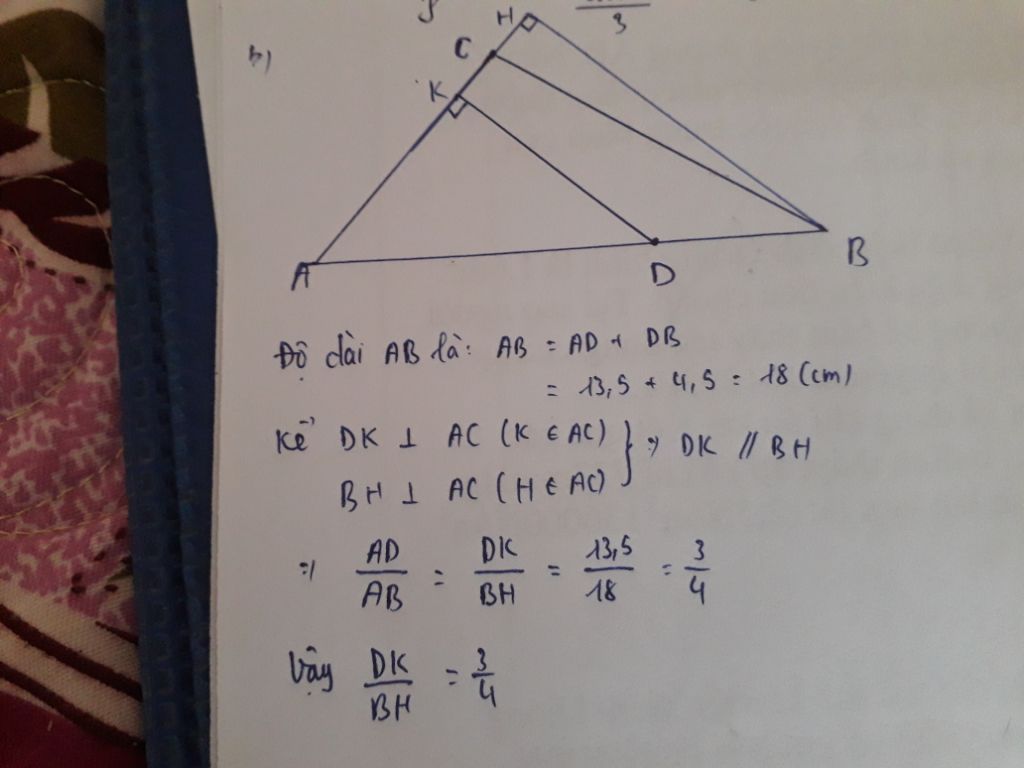 3
b)
H
C
K
A
D
B
Độ dài AB là: AB = AD + DB
= 13,5 + 4,5 = 18 (cm)
Kẻ DK ⊥ AC (K ∈ AC) } => DK // BH
BH ⊥ AC (H ∈ AC)
=> AD/AB = DK/BH = 13,5/18 = 3/4
Vậy DK/BH = 3/4